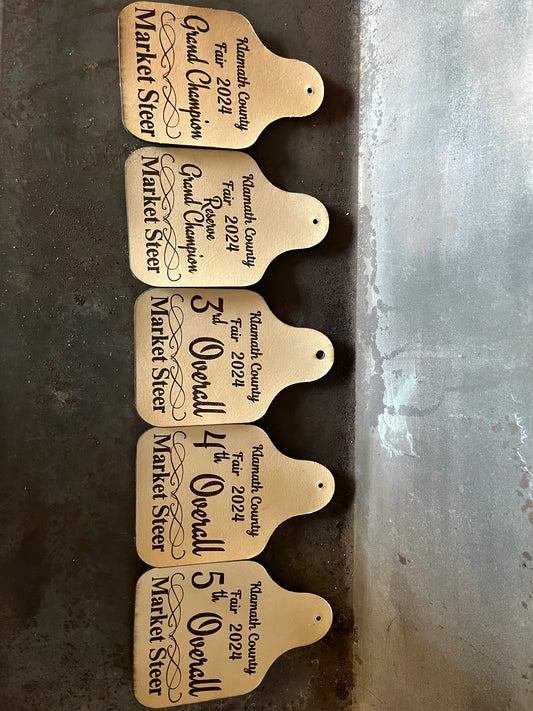 Klamath County
Fair 2024
Grand Champion
Market Steer
Klamath County
Fair 2024
Reserve
Grand Champion
Market Steer
Klamath County
Fair 2024
3rd Overall
Market Steer
Klamath County
Fair 2024
4th Overall
Market Steer
Klamath County
Fair 2024
5th Overall
Market Steer